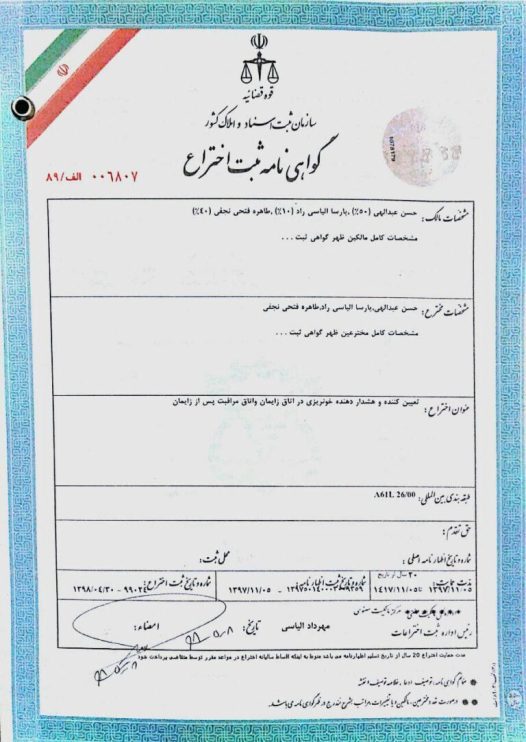 قوه قضائیه
سازمان ثبت اسناد و املاک کشور
گواهی نامه ثبت اختراع
۰۰۶۸۰۷ الف/۸۹
مشخصات مالک: حسن عبدالهی (۵۰٪) ,پارسا الیاسی راد (۱۰٪) ,طاهره فتحی نجفی (۴۰٪)
مشخصات کامل مالکین ظهر گواهی ثبت ...
مشخصات مخترع: حسن عبدالهی,پارسا الیاسی راد,طاهره فتحی نجفی
مشخصات کامل مخترعین ظهر گواهی ثبت ...
عنوان اختراع: تعیین کننده و هشدار دهنده خونریزی در اتاق زایمان واتاق مراقبت پس از زایمان
طبقه بندی بین المللی: A61L 26/00
حق تقدم:
شماره و تاریخ اظهارنامه اصلی: محل ثبت:
مدت حمایت: ۲۰ سال از تاریخ شماره و تاریخ ثبت اظهارنامه: شماره و تاریخ ثبت اختراع:
۱۳۹۷/۱۱/۰۵ تا ۱۴۱۷/۱۱/۰۵ - ۱۳۹۷/۱۱/۰۵ ۹۹۰۲۴ - ۱۳۹۸/۰۴/۳۰
مرکز مالکیت معنوی
رئیس اداره ثبت اختراعات مهرداد الیاسی تاریخ: امضاء:
مدت حمایت اختراع 20 سال از تاریخ تسلیم اظهارنامه می باشد منوط به اینکه اقساط سالیانه اختراع در مواعد مقرر توسط متقاضی پرداخت شود
ضمائم گواهی نامه: توصیف، ادعا، خلاصه توصیف و نقشه